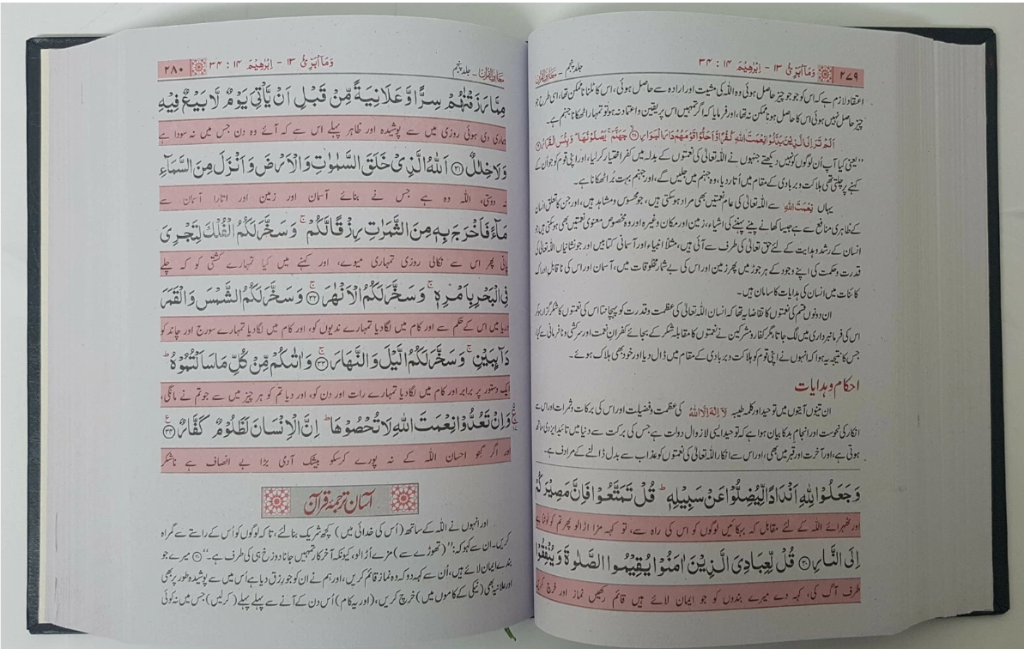 ۲۷۹
وَمَآ اُبَرِّئُ ۱۳ - اِبْرٰهِيْم ۱۴ : ۳۴
جلد پنجم - معارف القرآن
اعتقاد لازم ہے کہ اس کو جو جو چیز حاصل ہوئی وہ اللہ کی مشیت اور ارادہ سے حاصل ہوئی، اس کا ٹلنا ناممکن تھا، اسی طرح جو
چیز حاصل نہیں ہوئی اس کا حاصل ہونا ممکن نہ تھا، اور فرمایا کہ اگر تمہیں اس پر یقین و اعتماد نہ ہو تو تمہارا ٹھکانا جہنم ہے۔
اَلَمْ تَرَ اِلَى الَّذِيْنَ بَدَّلُوْا نِعْمَتَ اللهِ كُفْرًا وَّاَحَلُّوْا قَوْمَهُمْ دَارَ الْبَوَارِ ۞ جَهَنَّمَ ۚ يَصْلَوْنَهَا ۭ وَبِئْسَ الْقَرَارُ
"یعنی کیا آپ اُن لوگوں کو نہیں دیکھتے جنہوں نے اللہ تعالیٰ کی نعمتوں کے بدلہ میں کفر اختیار کر لیا، اور اپنی قوم کو جو ان کے
کہنے پر چلتی تھی ہلاکت و بربادی کے مقام میں اُتار دیا، وہ جہنم میں جلیں گے، اور جہنم بہت بُرا ٹھکانا ہے۔
یہاں نِعْمَتَ اللهِ سے اللہ تعالیٰ کی عام نعمتیں بھی مراد ہو سکتی ہیں، جو محسوس و مشاہد ہیں، اور جن کا تعلق انسان
کے ظاہری منافع سے ہے جیسا کھانے پینے پہننے کی اشیاء، زمین اور مکان وغیرہ اور وہ مخصوص معنوی نعمتیں بھی ہو سکتی ہیں جو
انسان کے رشد و ہدایت کے لئے حق تعالیٰ کی طرف سے آئی ہیں، مثلاً انبیاء اور آسمانی کتابیں اور جو نشانیاں اللہ تعالیٰ کی
قدرت و حکمت کی اپنے وجود کے ہر جوڑ میں پھر زمین اور اس کی بے شمار مخلوقات میں، آسمان اور اس کی ناقابل ادراک
کائنات میں انسان کی ہدایت کا سامان ہیں۔
ان دونوں قسم کی نعمتوں کا تقاضا یہ تھا کہ انسان اللہ تعالیٰ کی عظمت و قدرت کو پہچانتا اس کی نعمتوں کا شکر گزار ہو کر
اس کی فرمانبرداری میں لگ جاتا، مگر کفار و مشرکین نے نعمتوں کا مقابلہ شکر کے بجائے کفرانِ نعمت اور سرکشی و نافرمانی سے کیا،
جس کا نتیجہ یہ ہوا کہ انہوں نے اپنی قوم کو ہلاکت و بربادی کے مقام میں ڈال دیا اور خود بھی ہلاک ہوئے۔
احکام و ہدایات
ان تینوں آیتوں میں توحید اور کلمہ طیبہ لَآ اِلٰهَ اِلَّا اللهُ کی عظمت و فضیلت اور اس کی برکات و ثمرات اور اس سے
انکار کی نحوست اور انجام بد کا بیان ہوا ہے کہ توحید ایسی لازوال دولت ہے جس کی برکت سے دنیا میں تائید ایزدی ساتھ
ہوتی ہے، اور آخرت اور قبر میں بھی، اور اس سے انکار اللہ تعالیٰ کی نعمتوں کو عذاب سے بدل ڈالنے کے مرادف ہے۔
وَجَعَلُوْا لِلّٰهِ اَنْدَادًا لِّيُضِلُّوْا عَنْ سَبِيْلِهٖ ۭ قُلْ تَمَتَّعُوْا فَاِنَّ مَصِيْرَكُمْ
اور ٹھہرائے اللہ کے لئے مقابل کہ بہکائیں لوگوں کو اس کی راہ سے، تو کہہ مزا اڑا لو پھر تم کو لوٹنا ہے
اِلَى النَّارِ ۞ قُلْ لِّعِبَادِيَ الَّذِيْنَ اٰمَنُوْا يُقِيْمُوا الصَّلٰوةَ وَيُنْفِقُوْا
طرف آگ کی، کہہ دے میرے بندوں کو جو ایمان لائے ہیں قائم رکھیں نماز اور خرچ کریں
۲۸۰
وَمَآ اُبَرِّئُ ۱۳ - اِبْرٰهِيْم ۱۴ : ۳۴
جلد پنجم - معارف القرآن
مِمَّا رَزَقْنٰهُمْ سِرًّا وَّعَلَانِيَةً مِّنْ قَبْلِ اَنْ يَّاْتِيَ يَوْمٌ لَّا بَيْعٌ فِيْهِ
ہماری دی ہوئی روزی میں سے پوشیدہ اور ظاہر پہلے اس سے کہ آئے وہ دن جس میں نہ سودا ہے
وَلَا خِلٰلٌ ۞ اَللّٰهُ الَّذِيْ خَلَقَ السَّمٰوٰتِ وَالْاَرْضَ وَاَنْزَلَ مِنَ السَّمَآءِ
نہ دوستی، اللہ وہ ہے جس نے بنائے آسمان اور زمین اور اتارا آسمان سے
مَآءً فَاَخْرَجَ بِهٖ مِنَ الثَّمَرٰتِ رِزْقًا لَّكُمْ ۚ وَسَخَّرَ لَكُمُ الْفُلْكَ لِتَجْرِيَ
پانی پھر اس سے نکالی روزی تمہاری میوے، اور کہنے میں کیا تمہارے کشتی کو کہ چلے
فِي الْبَحْرِ بِاَمْرِهٖ ۚ وَسَخَّرَ لَكُمُ الْاَنْهٰرَ ۞ وَسَخَّرَ لَكُمُ الشَّمْسَ وَالْقَمَرَ
دریا میں اس کے حکم سے اور کام میں لگا دیا تمہارے ندیوں کو، اور کام میں لگا دیا تمہارے سورج اور چاند کو
دَآىِٕبَيْنِ ۚ وَسَخَّرَ لَكُمُ الَّيْلَ وَالنَّهَارَ ۞ وَاٰتٰىكُمْ مِّنْ كُلِّ مَا سَاَلْتُمُوْهُ ۭ
ایک دستور پر برابر اور کام میں لگا دیا تمہارے رات اور دن کو، اور دیا تم کو ہر چیز میں سے جو تم نے مانگی
وَاِنْ تَعُدُّوْا نِعْمَتَ اللهِ لَا تُحْصُوْهَا ۭ اِنَّ الْاِنْسَانَ لَظَلُوْمٌ كَفَّارٌ ۞
اور اگر گنو احسان اللہ کے نہ پورے کر سکو بیشک آدمی بڑا بے انصاف ہے ناشکر
آسان ترجمۂ قرآن
اور انہوں نے اللہ کے ساتھ (اُس کی خدائی میں) کچھ شریک بنا لئے، تاکہ لوگوں کو اُس کے راستے سے گمراہ
کریں۔ ان سے کہو کہ: "(تھوڑے سے) مزے اُڑا لو، کیونکہ آخر کار تمہیں جانا دوزخ ہی کی طرف ہے۔" میرے جو
بندے ایمان لائے ہیں، اُن سے کہہ دو کہ وہ نماز قائم کریں، اور ہم نے ان کو جو رزق دیا ہے اُس میں سے پوشیدہ طور پر بھی
اور علانیہ بھی (نیکی کے کاموں میں) خرچ کریں، (اور یہ کام) اُس دن کے آنے سے پہلے پہلے (کر لیں) جس میں نہ کوئی